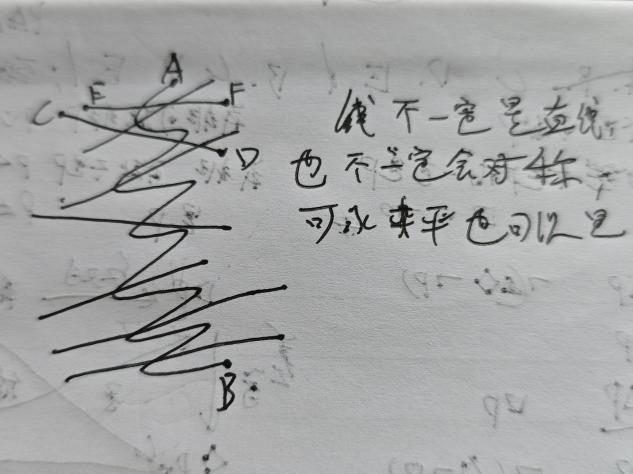 A
E F
C
D
B
线不一定是直线
也不一定会对称
可水平也可以是